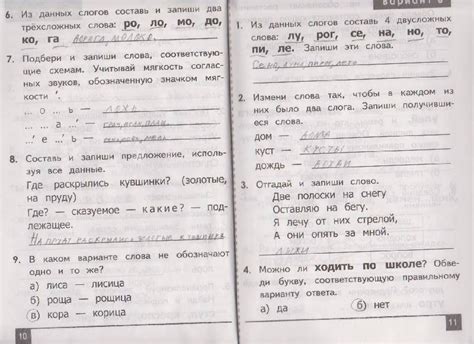 6. Из данных слогов составь и запиши два
трёхсложных слова: ро, ло, мо, до,
ко, га
7. Подбери и запиши слова, соответствую-
щие схемам. Учитывай мягкость соглас-
ных звуков, обозначенную значком мяг-
кости '.
.. о .. ь —
.. .. а ..' —
..' е ..' ь —
8. Составь и запиши предложение, исполь-
зуя все данные.
Где раскрылись кувшинки? (золотые,
на пруду)
Где? — сказуемое — какие? — под-
лежащее.
9. В каком варианте слова не обозначают
одно и то же?
а) лиса — лисица
б) роща — рощица
в) кора — корица
10
1. Из данных слогов составь 4 двусложных
слова: лу, рог, се, на, но, то,
пи, ле. Запиши эти слова.
2. Измени слова так, чтобы в каждом из
них было два слога. Запиши получивши-
еся слова.
дом — дома
куст — кусты
дождь —
3. Отгадай и запиши слово.
Две полоски на снегу
Оставляю на бегу.
Я лечу от них стрелой,
А они опять за мной.
лыжи
4. Можно ли ходить по школе? Обве-
ди букву, соответствующую правильному
варианту ответа.
а) да б) нет
11